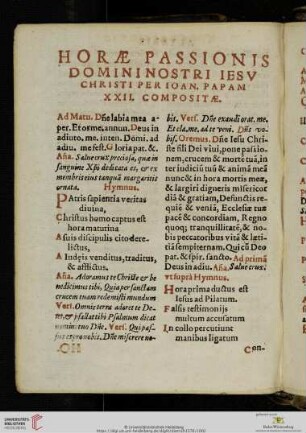 HORÆ PASSIONIS
DOMINI NOSTRI IESV
CHRISTI PER IOAN. PAPAM
XXII. COMPOSITÆ.
Ad Matu. Dñe labia mea a-
per. Et os me. annun. Deus in
adiuto. me. inten. Domi. ad
adiu. me fest. Gloria pat. &.
Aña. Salue crux preciosa, quæ in
sanguine Xpi dedicata es, & ex
membris eius tanquã margaritis
ornata. Hymnus.
PAtris sapientia veritas
diuina,
Christus homo captus est
hora matutina
A suis discipulis cito dere-
lictus,
A Iudęis venditus, traditus,
& afflictus.
Aña. Adoramus te Christe & be
nedicimus tibi, Quia per sanctam
crucem tuam redemisti mundum
Vers. Omnis terra adoret te De-
us, & psallat tibi Psalmum dicat
nomini tuo Dñe. Vers. Qui pas-
sus es pro nobis, Dñe miserere no-
bis. Vers. Dñe exaudi orat. me.
Et cla. me. ad te veni. Dñs vo-
bis. Oremus. Dñe Iesu Chri-
ste fili Dei viui, pone passiõ-
nem, crucem & mortẽ tuã, in
ter iudiciũ tuũ & animã meã
nunc & in hora mortis meæ,
& largiri digneris misericor
diã & gratiam, Defunctis re-
quiẽ & veniã, Ecclesiæ tuæ
pacẽ & concordiam, Regno
quoq; tranquillitatẽ, & no-
bis peccatoribus vitã & læti-
tiã sempiternam. Qui cũ Deo
pat. & spir. sancto. Ad primã
Deus in adiu. Aña. Salue crux:
vt suprà Hymnus.
HOra prima ductus est
Iesus ad Pilatum.
Falsis testimonijs
multum accusatum
In collo percutiunt
manibus ligatum
Con-